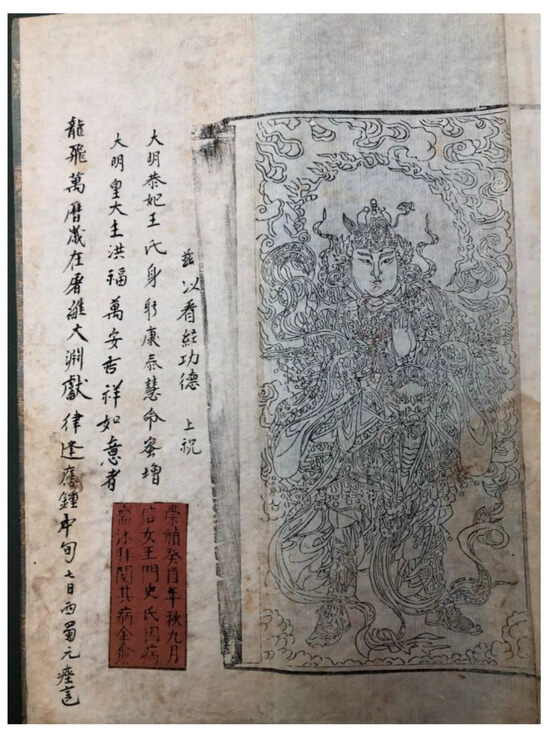 茲以看經功德 上祝
大明恭妃王氏身躬康泰慧命密增
大明皇大主洪福萬安吉祥如意者
龍飛萬曆歲在屠維大淵獻律逢應鍾中旬七日西蜀元
崇禎癸酉年秋九月
信女王門史氏因病
齋沐拜閱其病全愈